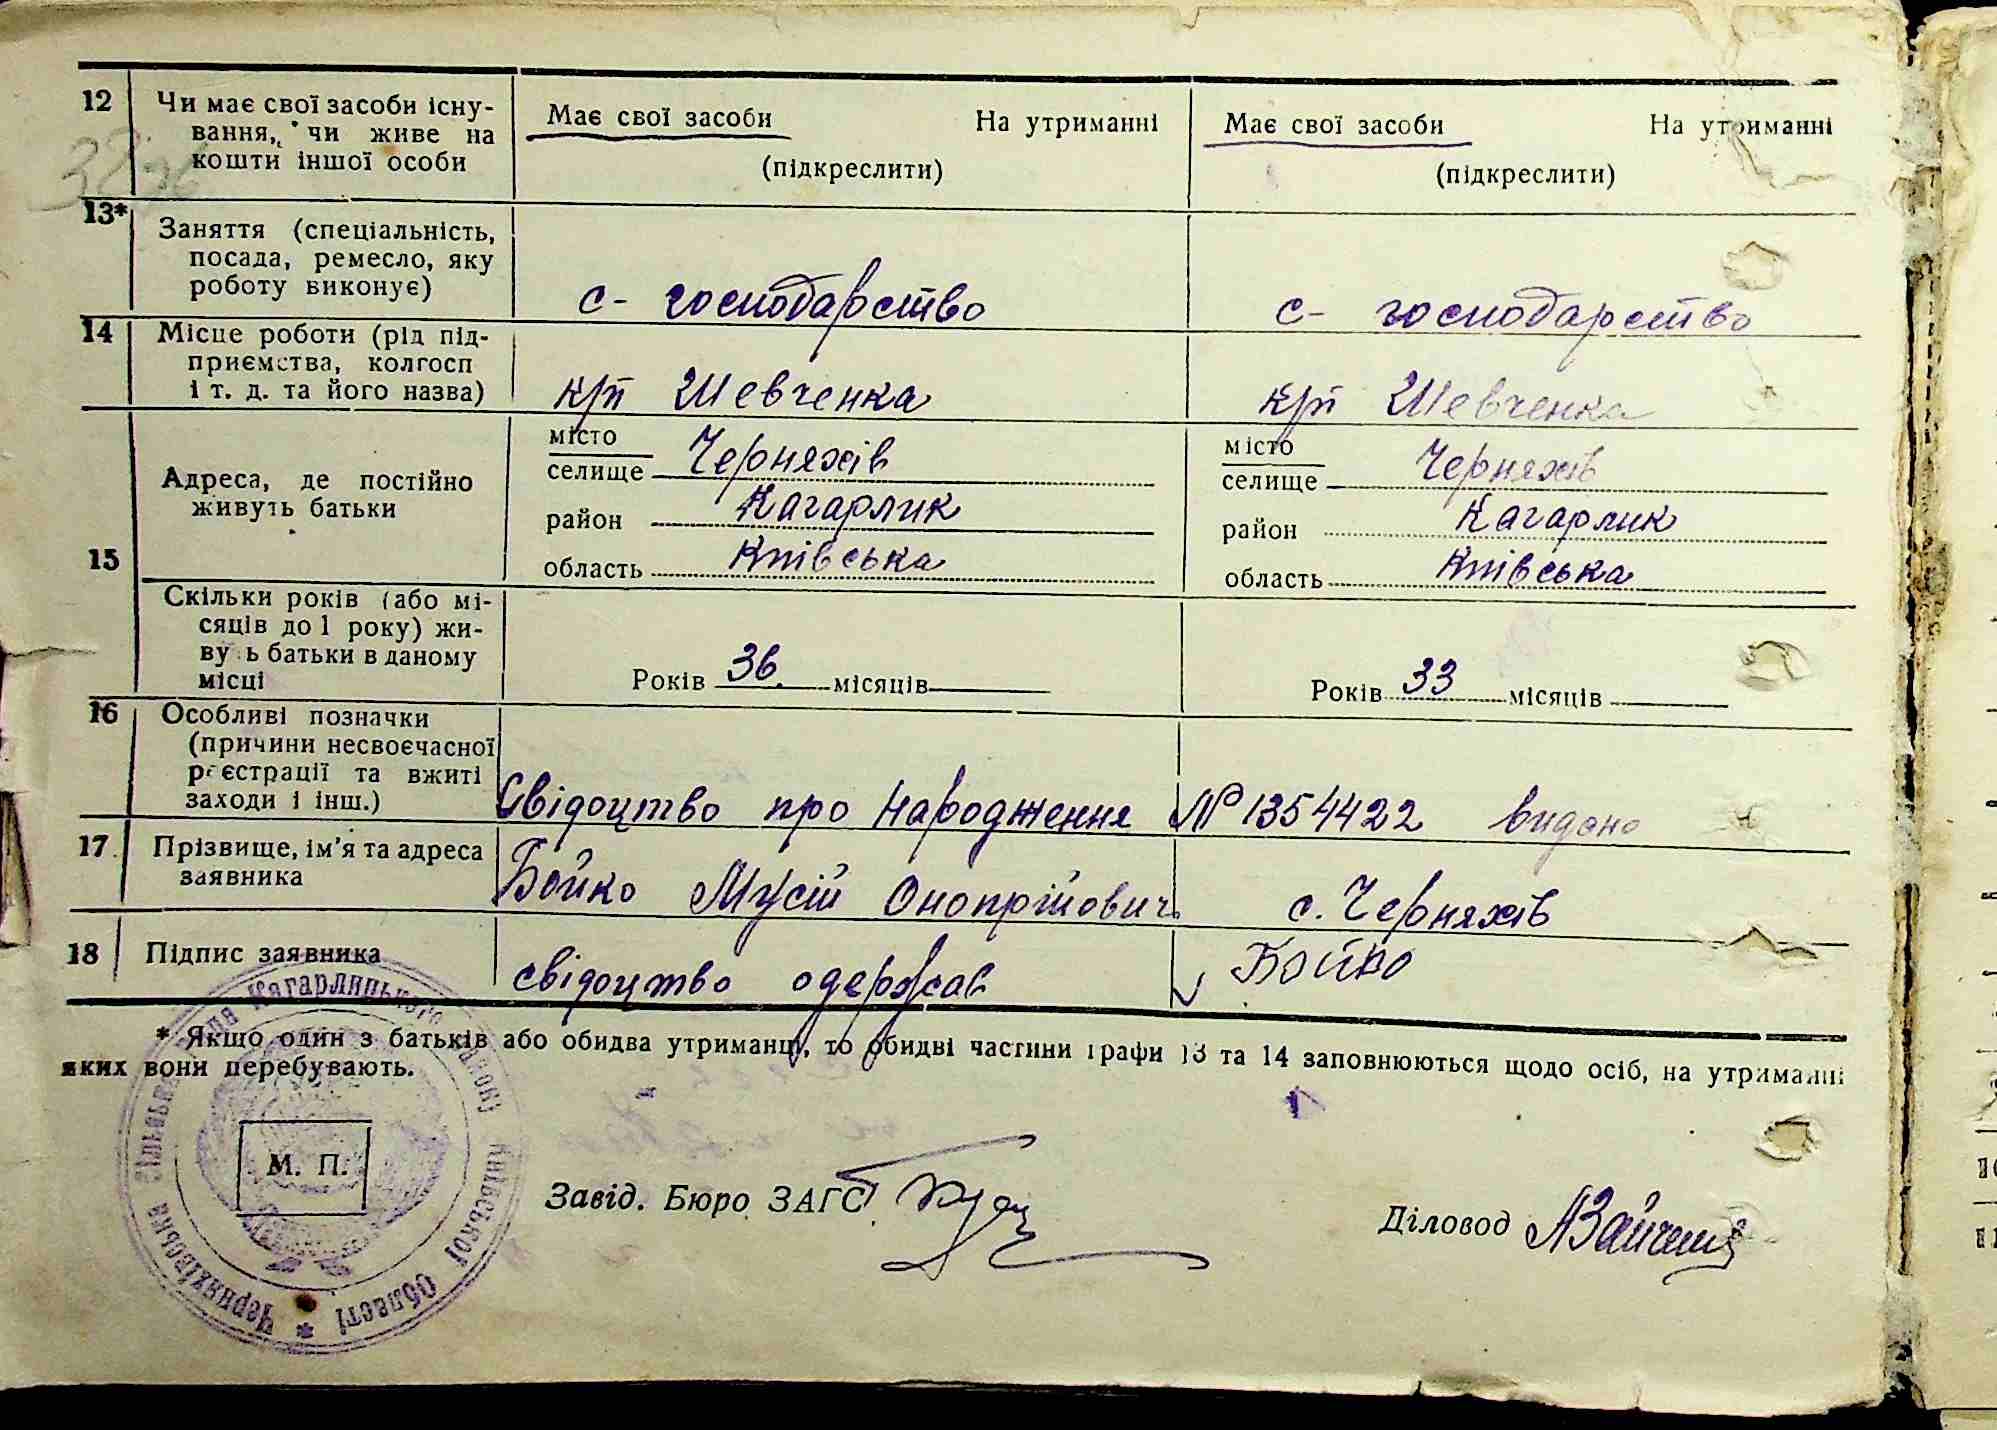 12 Чи має свої засоби існу-
вання, чи живе на
кошти іншої особи
Має свої засоби На утриманні
(підкреслити)
Має свої засоби На утриманні
(підкреслити)
13* Заняття (спеціальність,
посада, ремесло, яку
роботу виконує)
с- господарство
с- господарство
14 Місце роботи (рід під-
приємства, колгосп
і т. д. та його назва)
к/г Шевченка
к/г Шевченка
15 Адреса, де постійно
живуть батьки
місто
селище Черняхів
район Кагарлик
область Київська
місто
селище Черняхів
район Кагарлик
область Київська
Скільки років (або мі-
сяців до 1 року) жи-
вуть батьки в даному
місці
Років 36 місяців
Років 33 місяців
16 Особливі позначки
(причини несвоєчасної
реєстрації та вжиті
заходи і інш.)
Свідоцтво про народження № 1354422 видано
17 Прізвище, ім'я та адреса
заявника
Бойко Мусій Онопрійович с. Черняхів
18 Підпис заявника
свідоцтво одержав Бойко
* Якщо один з батьків або обидва утриманці, то обидві частини графи 13 та 14 заповнюються щодо осіб, на утриманні
яких вони перебувають.
Черняхівська сільська рада Кагарлицького району Київської області *
М. П.
Завід. Бюро ЗАГС
Діловод